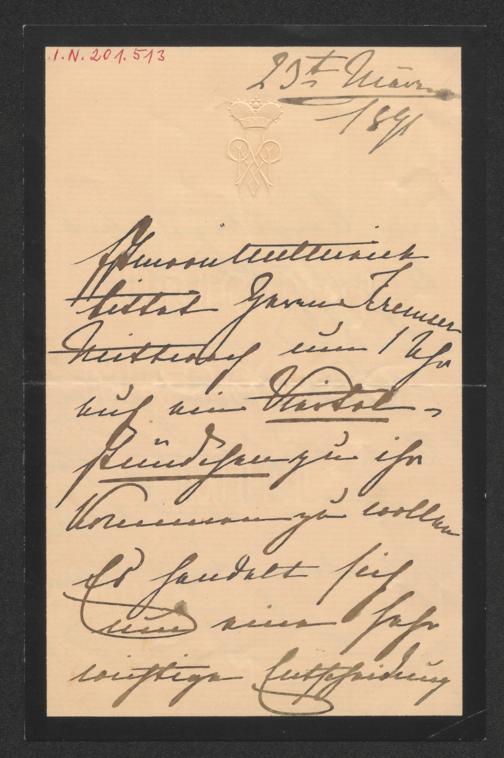 I.N. 201.513
23t März
1891
bittet Herrn Kremser
Mittwoch um 1 Uhr
auf ein Viertel-
stündchen zu ihr
kommen zu wollen
Es handelt sich
um eine sehr
wichtige Entscheidung